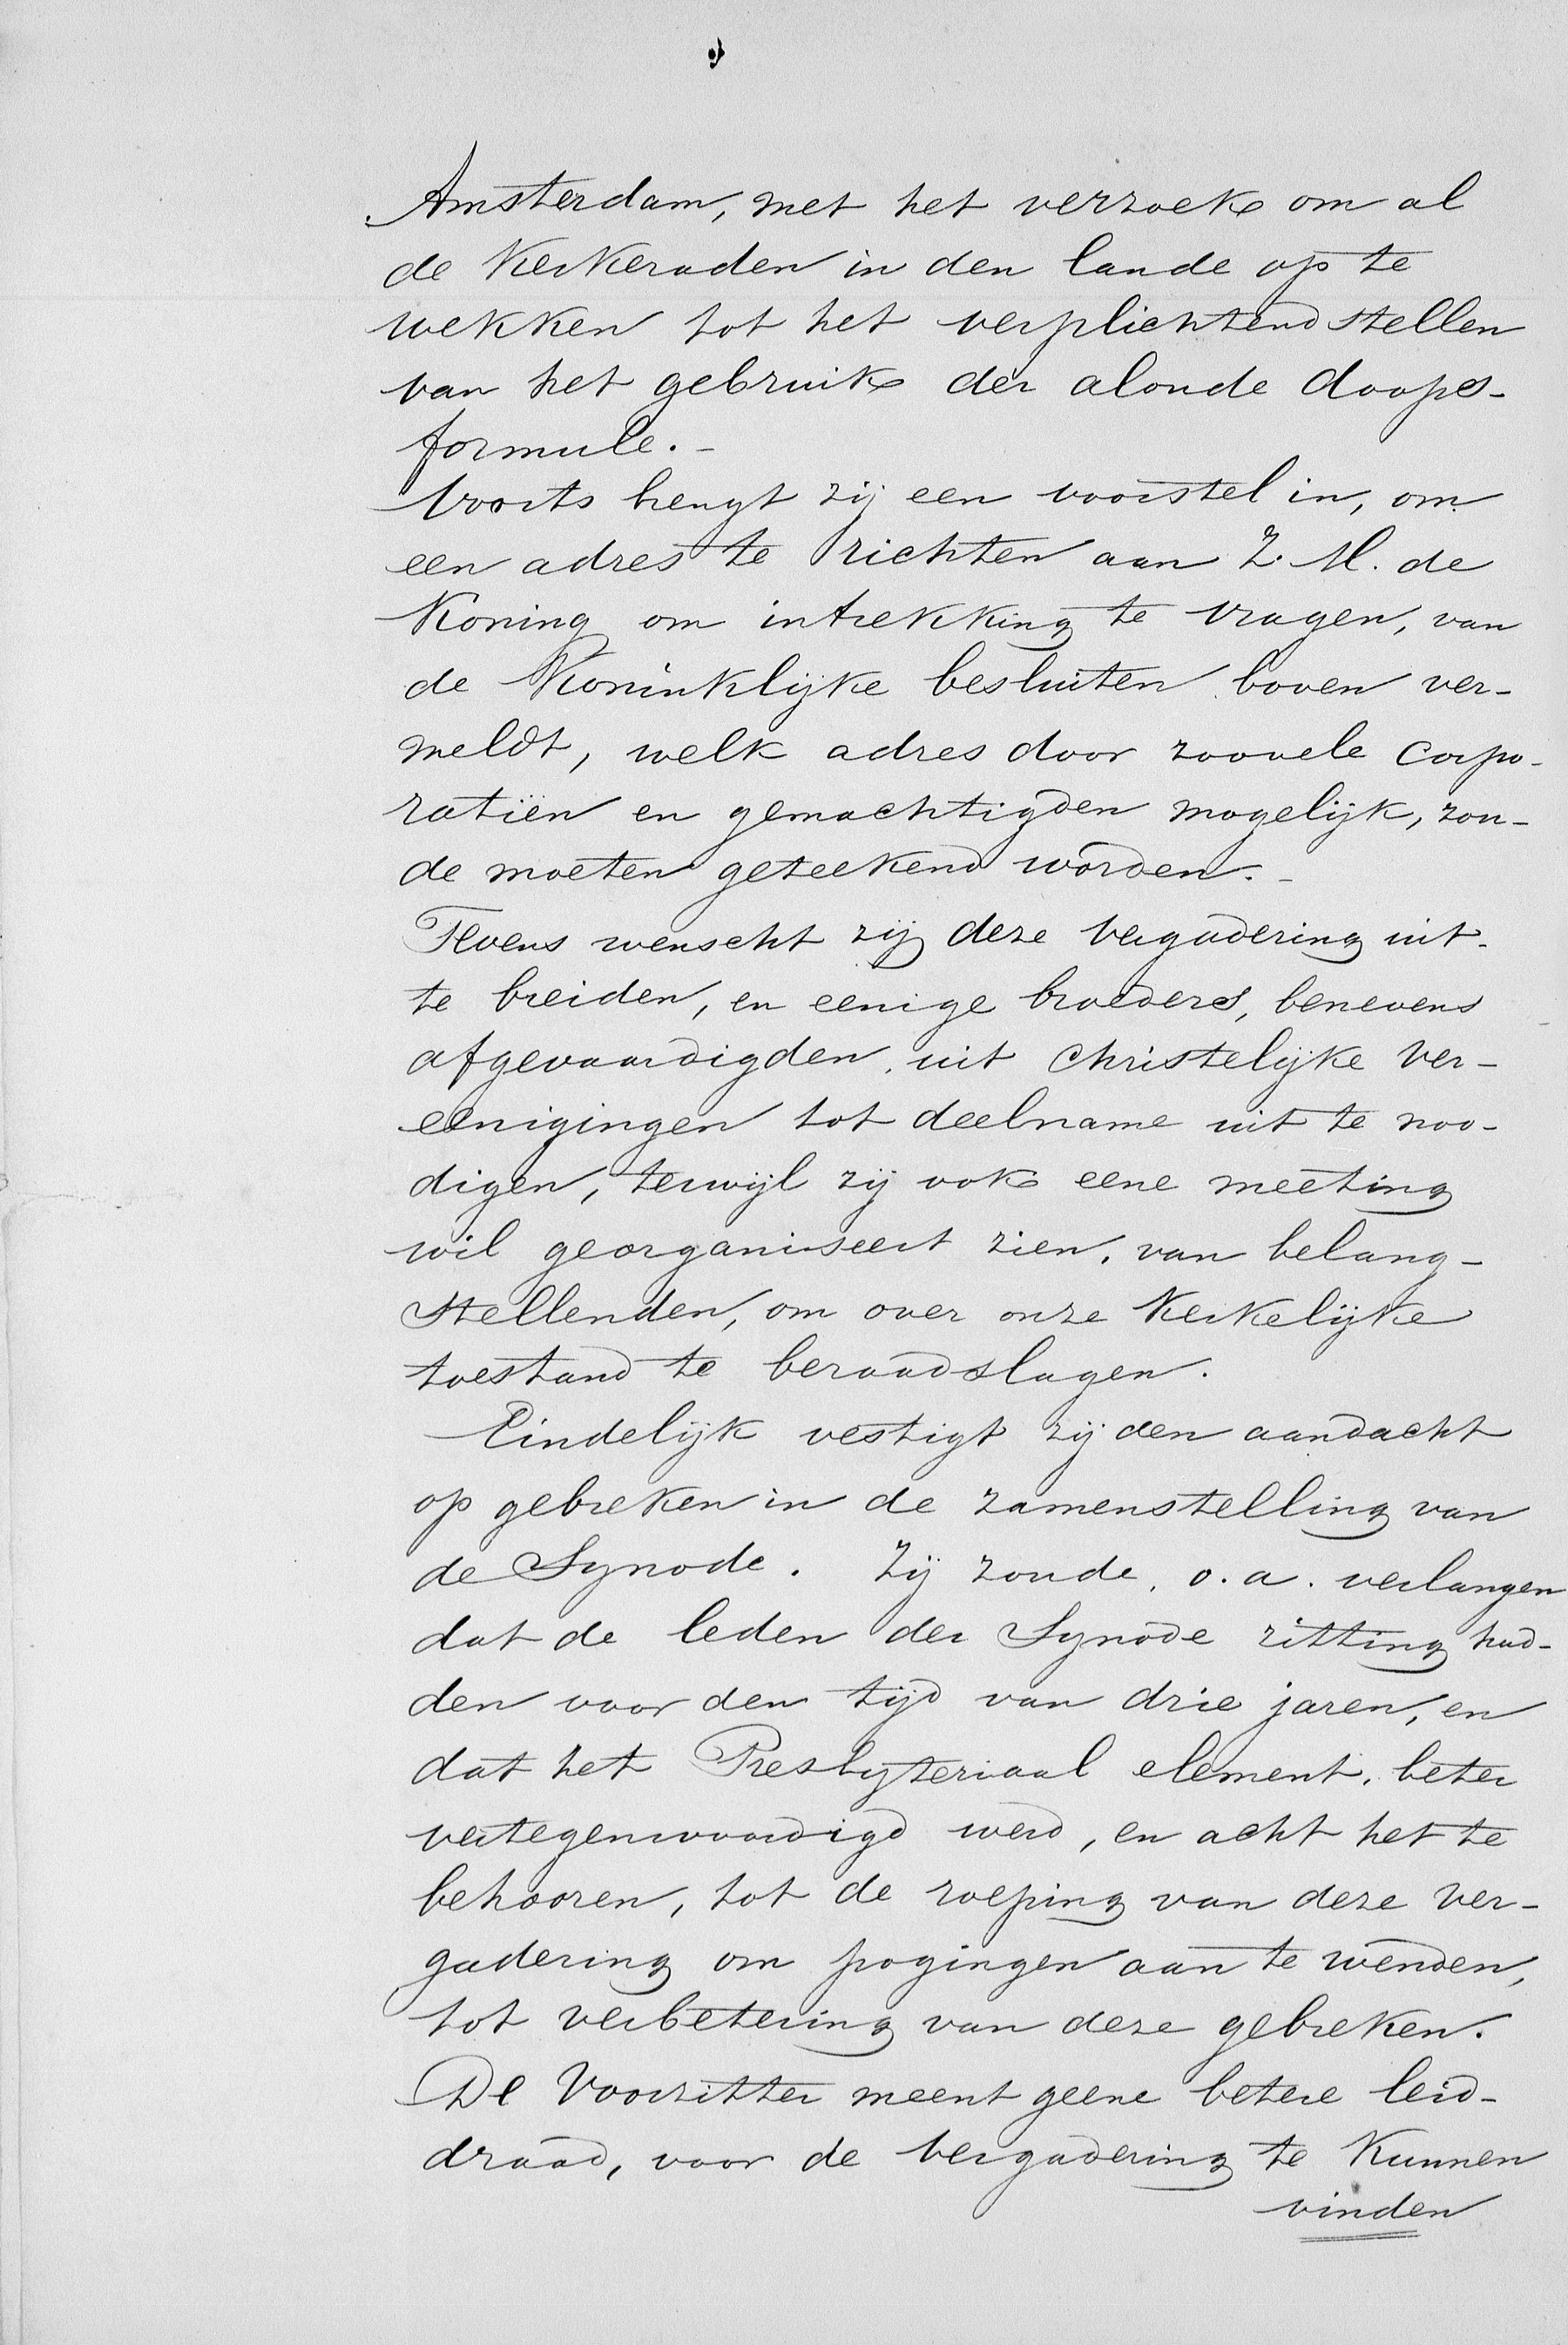 Amsterdam, met het verzoek om al
de Kerkeraden in den lande op te
wekken tot het verplichtend stellen
van het gebruik der aloude doops-
formule. -
Voorts hengt zij een voorstel in, om
een adres te richten aan Z. M. de
Koning om intrekking te vragen, van
de Koninklijke besluiten boven ver-
meldt, welk adres door zoovele corpo-
ratiën en gemachtigden mogelijk, zou-
de moeten geteekend worden. -
Tevens wenscht zij deze vergadering uit-
te breiden, en eenige broeders, benevens
afgevaardigden, uit Christelijke Ver-
eenigingen tot deelname uit te noo-
digen, terwijl zij ook eene meeting
wil georganiseert zien, van belang-
stellenden, om over onze Kerkelijke
toestand te beraadslagen.
Eindelijk vestigt zij den aandacht
op gebreken in de zamenstelling van
de Synode. Zij zoude, o. a. verlangen
dat de leden der Synode zitting had-
den voor den tijd van drie jaren, en
dat het Presbyteriaal element, beter
vertegenwoordigd werd, en acht het te
behooren, tot de roeping van deze Ver-
gadering om pogingen aan te wenden,
tot verbetering van deze gebreken.
De Voorzitter meent geene betere leid-
draad, voor de vergadering te Kunnen
vinden